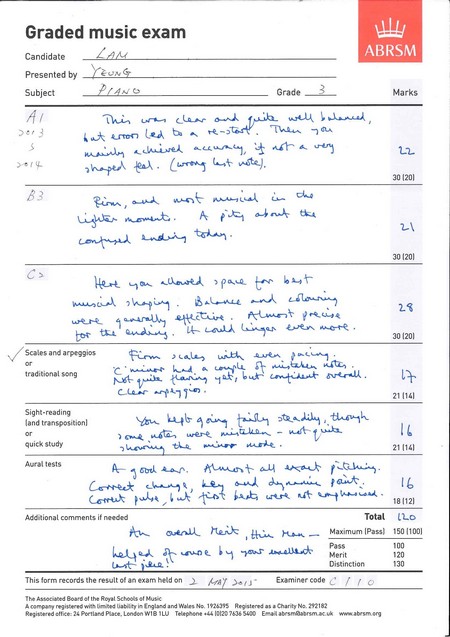 Graded music exam
ABRSM
Candidate LAM
Presented by YEUNG
Subject PIANO Grade 3 Marks
A1
2013
3
2014
This was clear and quite well balanced,
but errors led to a re-start. Then you
mainly achieved accuracy, if not a very
shaped feel. (wrong last note).
22
30 (20)
B3
Firm, and most musical in the
lighter moments. A pity about the
confused ending today.
21
30 (20)
Here you allowed space for best
musical shaping. Balance and colouring
were generally effective. Almost precise
for the ending. It could linger even more.
28
30 (20)
Scales and arpeggios
or
traditional song
Firm scales with even pacing.
'C' minor had a couple of mistaken notes.
Not quite flowing yet, but confident overall.
Clear arpeggios.
17
21 (14)
Sight-reading
(and transposition)
or
quick study
You kept going fairly steadily, though
some notes were mistaken - not quite
showing the minor mode.
16
21 (14)
Aural tests
A good ear. Almost all exact pitching.
Correct change, key and dynamic point.
Correct pulse, but first beats were not emphasised.
16
18 (12)
Additional comments if needed
An overall Merit, Hiu Man -
helped of course by your excellent
last piece!
Total 120
Maximum (Pass) 150 (100)
Pass 100
Merit 120
Distinction 130
This form records the result of an exam held on 2 MAY 2015 Examiner code C110
The Associated Board of the Royal Schools of Music
A company registered with limited liability in England and Wales No. 1926395 Registered as a Charity No. 292182
Registered office: 24 Portland Place, London W1B 1LU Telephone +44 (0)20 7636 5400 Email abrsm@abrsm.ac.uk www.abrsm.org